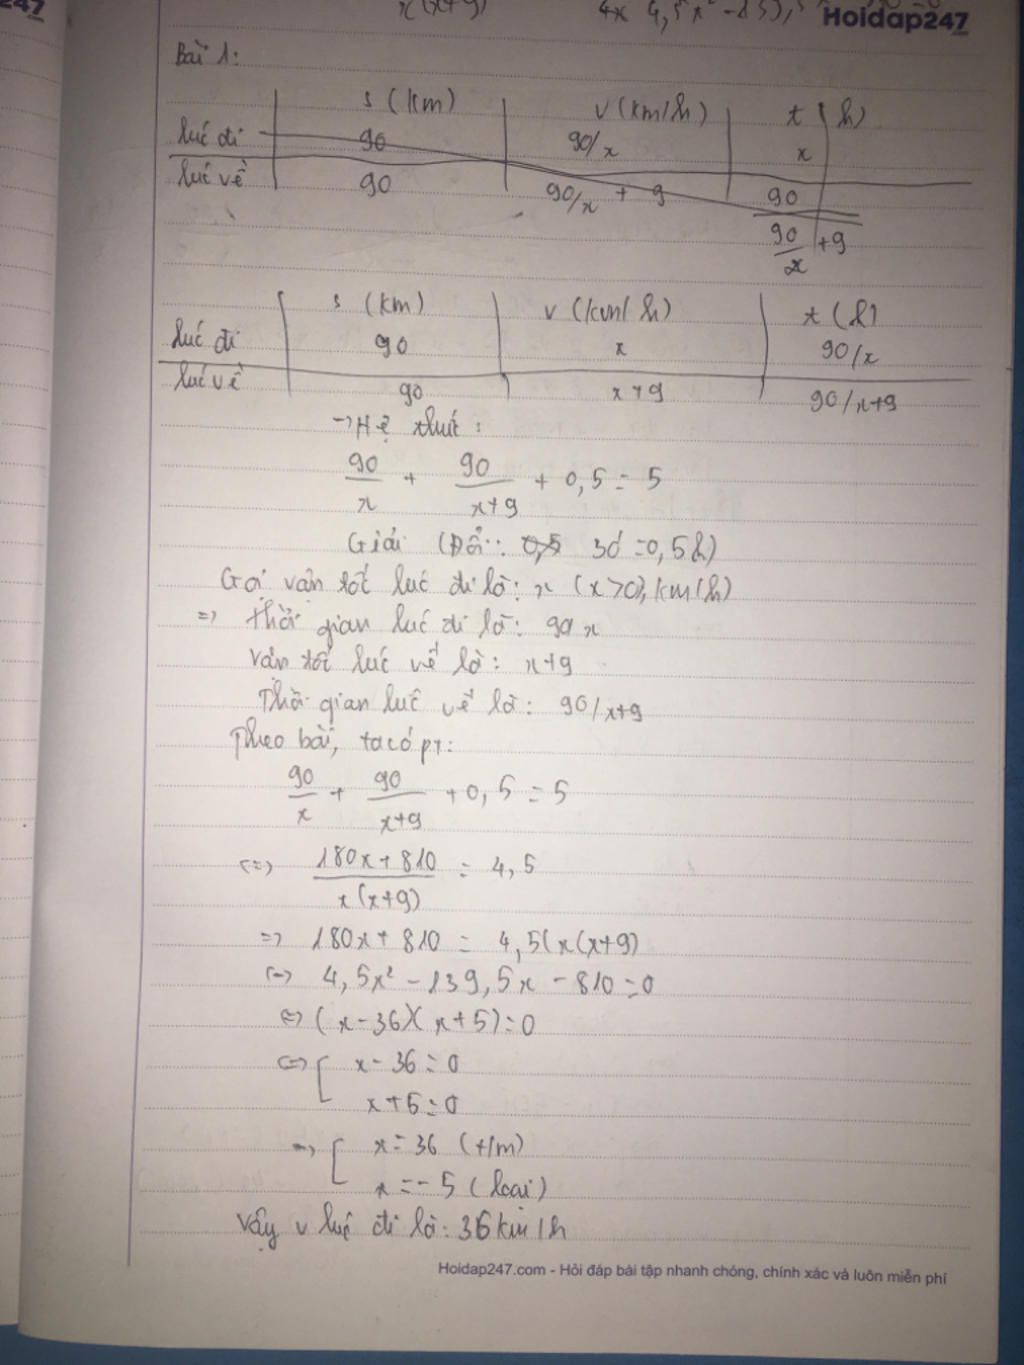 247
x(x+9)
4x 4,5x² -139,5
Hoidap247
Bài 1:
s (km) v (km/h) t (h)
lúc đi 90 90/x x
lúc về 90 90/x + 9 90
90/x +9
s (km) v (km/h) t (h)
lúc đi 90 x 90/x
lúc về 90 x+9 90/x+9
→ Hệ thức:
90/x + 90/(x+9) + 0,5 = 5
Giải (Đổi: 0,5 30' = 0,5h)
Gọi vận tốc lúc đi là: x (x>0, km/h)
=> Thời gian lúc đi là: 90/x
Vận tốc lúc về là: x+9
Thời gian lúc về là: 90/x+9
Theo bài, ta có pt:
90/x + 90/(x+9) + 0,5 = 5
(=) (180x + 810)/(x(x+9)) = 4,5
=> 180x + 810 = 4,5(x(x+9)
(=) 4,5x² - 139,5x - 810 = 0
<=> (x-36)(x+5)=0
<=> [ x - 36 = 0
x+5=0
=> [ x = 36 (t/m)
x = -5 (loại)
Vậy v lúc đi là: 36 km/h
Hoidap247.com - Hỏi đáp bài tập nhanh chóng, chính xác và luôn miễn phí